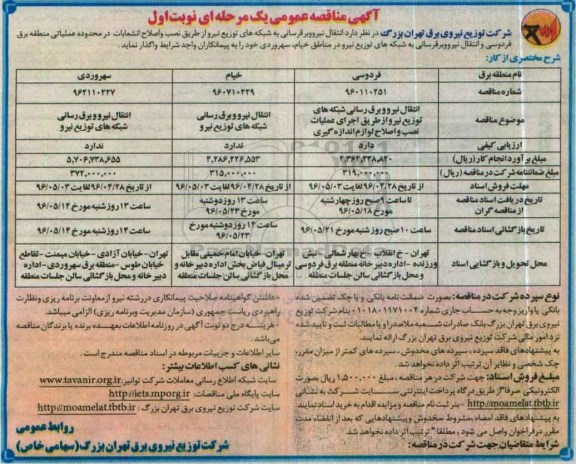 آگهی مناقصه عمومی یک مرحله ای نوبت اول
شرکت توزیع نیروی برق تهران بزرگ در نظر دارد انتقال نیرو و برق رسانی به شبکه های توزیع نیرو از طریق نصب و اصلاح انشعابات در محدوده عملیاتی منطقه برق
فردوسی و انتقال نیرو و برق رسانی به شبکه های توزیع نیرو در مناطق خیام، سهروردی خود را به پیمانکاران واجد شرایط واگذار نماید.
شرح مختصری از کار:
نام منطقه برق فردوسی خیام سهروردی
شماره مناقصه ۹۶۰۱۱۰۲۵۱ ۹۶۰۷۱۰۲۲۹ ۹۶۲۱۱۰۲۲۷
موضوع مناقصه انتقال نیرو و برق رسانی شبکه های توزیع نیرو از طریق اجرای عملیات نصب و اصلاح لوازم اندازه گیری انتقال نیرو و برق رسانی شبکه های توزیع نیرو انتقال نیرو و برق رسانی شبکه های توزیع نیرو
ارزیابی کیفی دارد ندارد ندارد
مبلغ برآورد انجام کار (ریال) ۲,۳۶۲,۲۳۸,۸۲۰ ۲,۲۸۶,۲۲۶,۵۵۳ ۵,۷۰۶,۷۳۸,۶۵۵
مبلغ ضمانتنامه شرکت در مناقصه (ریال) ۳۱۹,۰۰۰,۰۰۰ ۳۱۵,۰۰۰,۰۰۰ ۳۷۲,۰۰۰,۰۰۰
مهلت فروش اسناد از تاریخ ۹۶/۰۴/۲۸ لغایت ۹۶/۰۵/۰۳ از تاریخ ۹۶/۰۴/۲۸ لغایت ۹۶/۰۵/۰۳ از تاریخ ۹۶/۰۴/۲۸ لغایت ۹۶/۰۵/۰۳
تاریخ دریافت اسناد مناقصه از مناقصه گران تا ساعت ۹ صبح روز چهارشنبه مورخ ۹۶/۰۵/۱۸ ساعت ۱۳ روز دوشنبه مورخ ۹۶/۰۵/۲۳ ساعت ۱۳ روز شنبه مورخ ۹۶/۰۵/۱۴
تاریخ بازگشائی اسناد مناقصه ساعت ۱۰ صبح روز شنبه مورخ ۹۶/۰۵/۲۱ ساعت ۱۴ روز دوشنبه مورخ ۹۶/۰۵/۲۳ ساعت ۱۴ روز شنبه مورخ ۹۶/۰۵/۱۴
محل تحویل و بازگشایی اسناد تهران - خ انقلاب - خ بهار شمالی - نبش ورزنده - اداره دبیرخانه منطقه برق فردوسی و محل بازگشائی سالن جلسات منطقه تهران - خیابان امام خمینی مقابل ترمینال فیاض بخش اداره دبیرخانه و محل بازگشائی سالن جلسات منطقه تهران - خیابان آزادی - خیابان میمنت - تقاطع خیابان طوس - منطقه برق سهروردی - اداره دبیرخانه و محل بازگشائی سالن جلسات منطقه
نوع سپرده شرکت در مناقصه: بصورت ضمانت نامه بانکی و یا چک تضمین شده
بانکی یا واریز وجه به حساب جاری شماره ۰۱۰۱۸۰۱۱۷۱۰۰۴ بنام شرکت توزیع
نیروی برق تهران بزرگ بانک صادرات شعبه ملاصدرا و یا مطالبات ثبت و تایید شده
نزد امور مالی شرکت توزیع نیروی برق تهران بزرگ ارائه نمایند.
به پیشنهادهای فاقد سپرده، سپرده های مخدوش، سپرده های کمتر از میزان مقرر،
چک شخصی و نظایر آن ترتیب اثر داده نخواهد شد.
مبلغ فروش اسناد: جهت شرکت در هر مناقصه، مبلغ ۱,۵۰۰,۰۰۰ ریال بصورت
الکترونیکی صرفا" از طریق درگاه پرداخت اینترنتی سایت شرکت به نشانی
http://moamelat.tbtb.ir - بنر ثبت نام مناقصه و مزایده اقدام به خرید اسناد نمایند
به پیشنهادهای فاقد امضاء، مشروط، مخدوش و پیشنهادهایی که بعد از انقضاء مدت
مقرر در فراخوان واصل می شود، مطلقا" ترتیب اثر داده نخواهد شد.
شرایط متقاضیان جهت شرکت در مناقصه:
-داشتن گواهینامه صلاحیت پیمانکاری در رشته نیرو از معاونت برنامه ریزی و نظارت
راهبردی ریاست جمهوری (سازمان مدیریت و برنامه ریزی) الزامی میباشد.
- هزینه درج دو نوبت آگهی در روزنامه اطلاعات بعهده برنده یا برندگان مناقصه
می باشد.
سایر اطلاعات و جزییات مربوطه در اسناد مناقصه مندرج است.
نشانی های کسب اطلاعات بیشتر:
سایت شبکه اطلاع رسانی معاملات شرکت توانیر: www.tavanir.org.ir
سایت پایگاه ملی مناقصات: http://iets.mporg.ir
سایت شرکت توزیع نیروی برق تهران بزرگ: http://moamelat.tbtb.ir
روابط عمومی
شرکت توزیع نیروی برق تهران بزرگ (سهامی خاص)